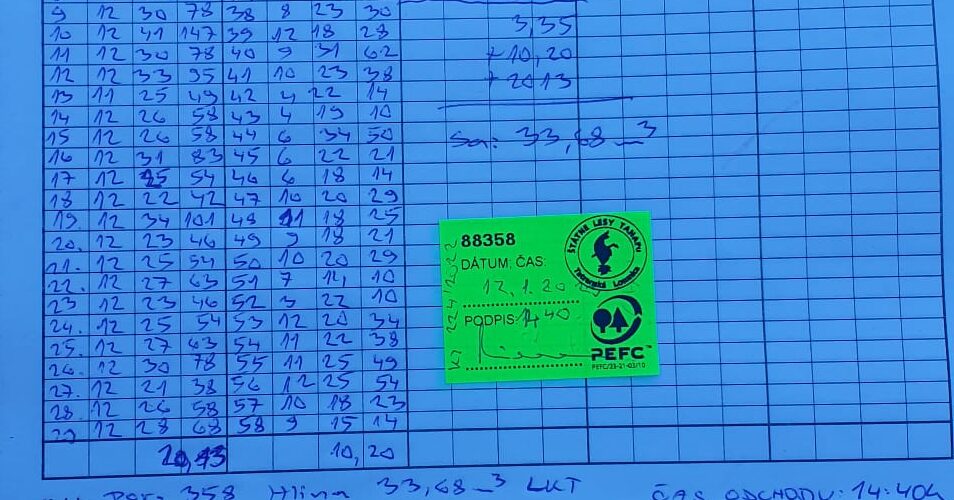 9 12 30 78 38 8 23 30
10 12 41 147 39 12 18 28
11 12 30 78 40 9 31 62
12 12 33 95 41 10 23 38
13 11 25 49 42 4 22 14
14 12 26 58 43 4 19 10
15 12 26 58 44 6 34 50
16 12 31 83 45 6 22 21
17 12 25 54 46 6 18 14
18 12 22 42 47 10 20 29
19. 12 34 101 48 11 18 25
20. 12 23 46 49 9 18 21
21. 12 25 54 50 10 20 29
22. 12 27 63 51 7 10
23 12 23 46 52 3 22 10
24. 12 25 54 53 12 20 34
25. 12 27 63 54 11 22 38
26. 12 30 78 55 11 25 49
27. 12 21 38 56 12 25 54
28. 12 26 58 57 10 18 23
29 12 28 68 58 9 15 14
20,13 10,20
3,35
+ 10,20
+ 20 13
Sa: 33,68 m3
88358
DÁTUM, ČAS:
12.1.20
PODPIS: 14 40
ŠTÁTNE LESY TANAPU
Tatranská Lomnica
PEFC™
PEFC/23-21-03/10
Por. 358 Hlina 33,68 m3 LKT
ČAS ODCHODU: 14:40h